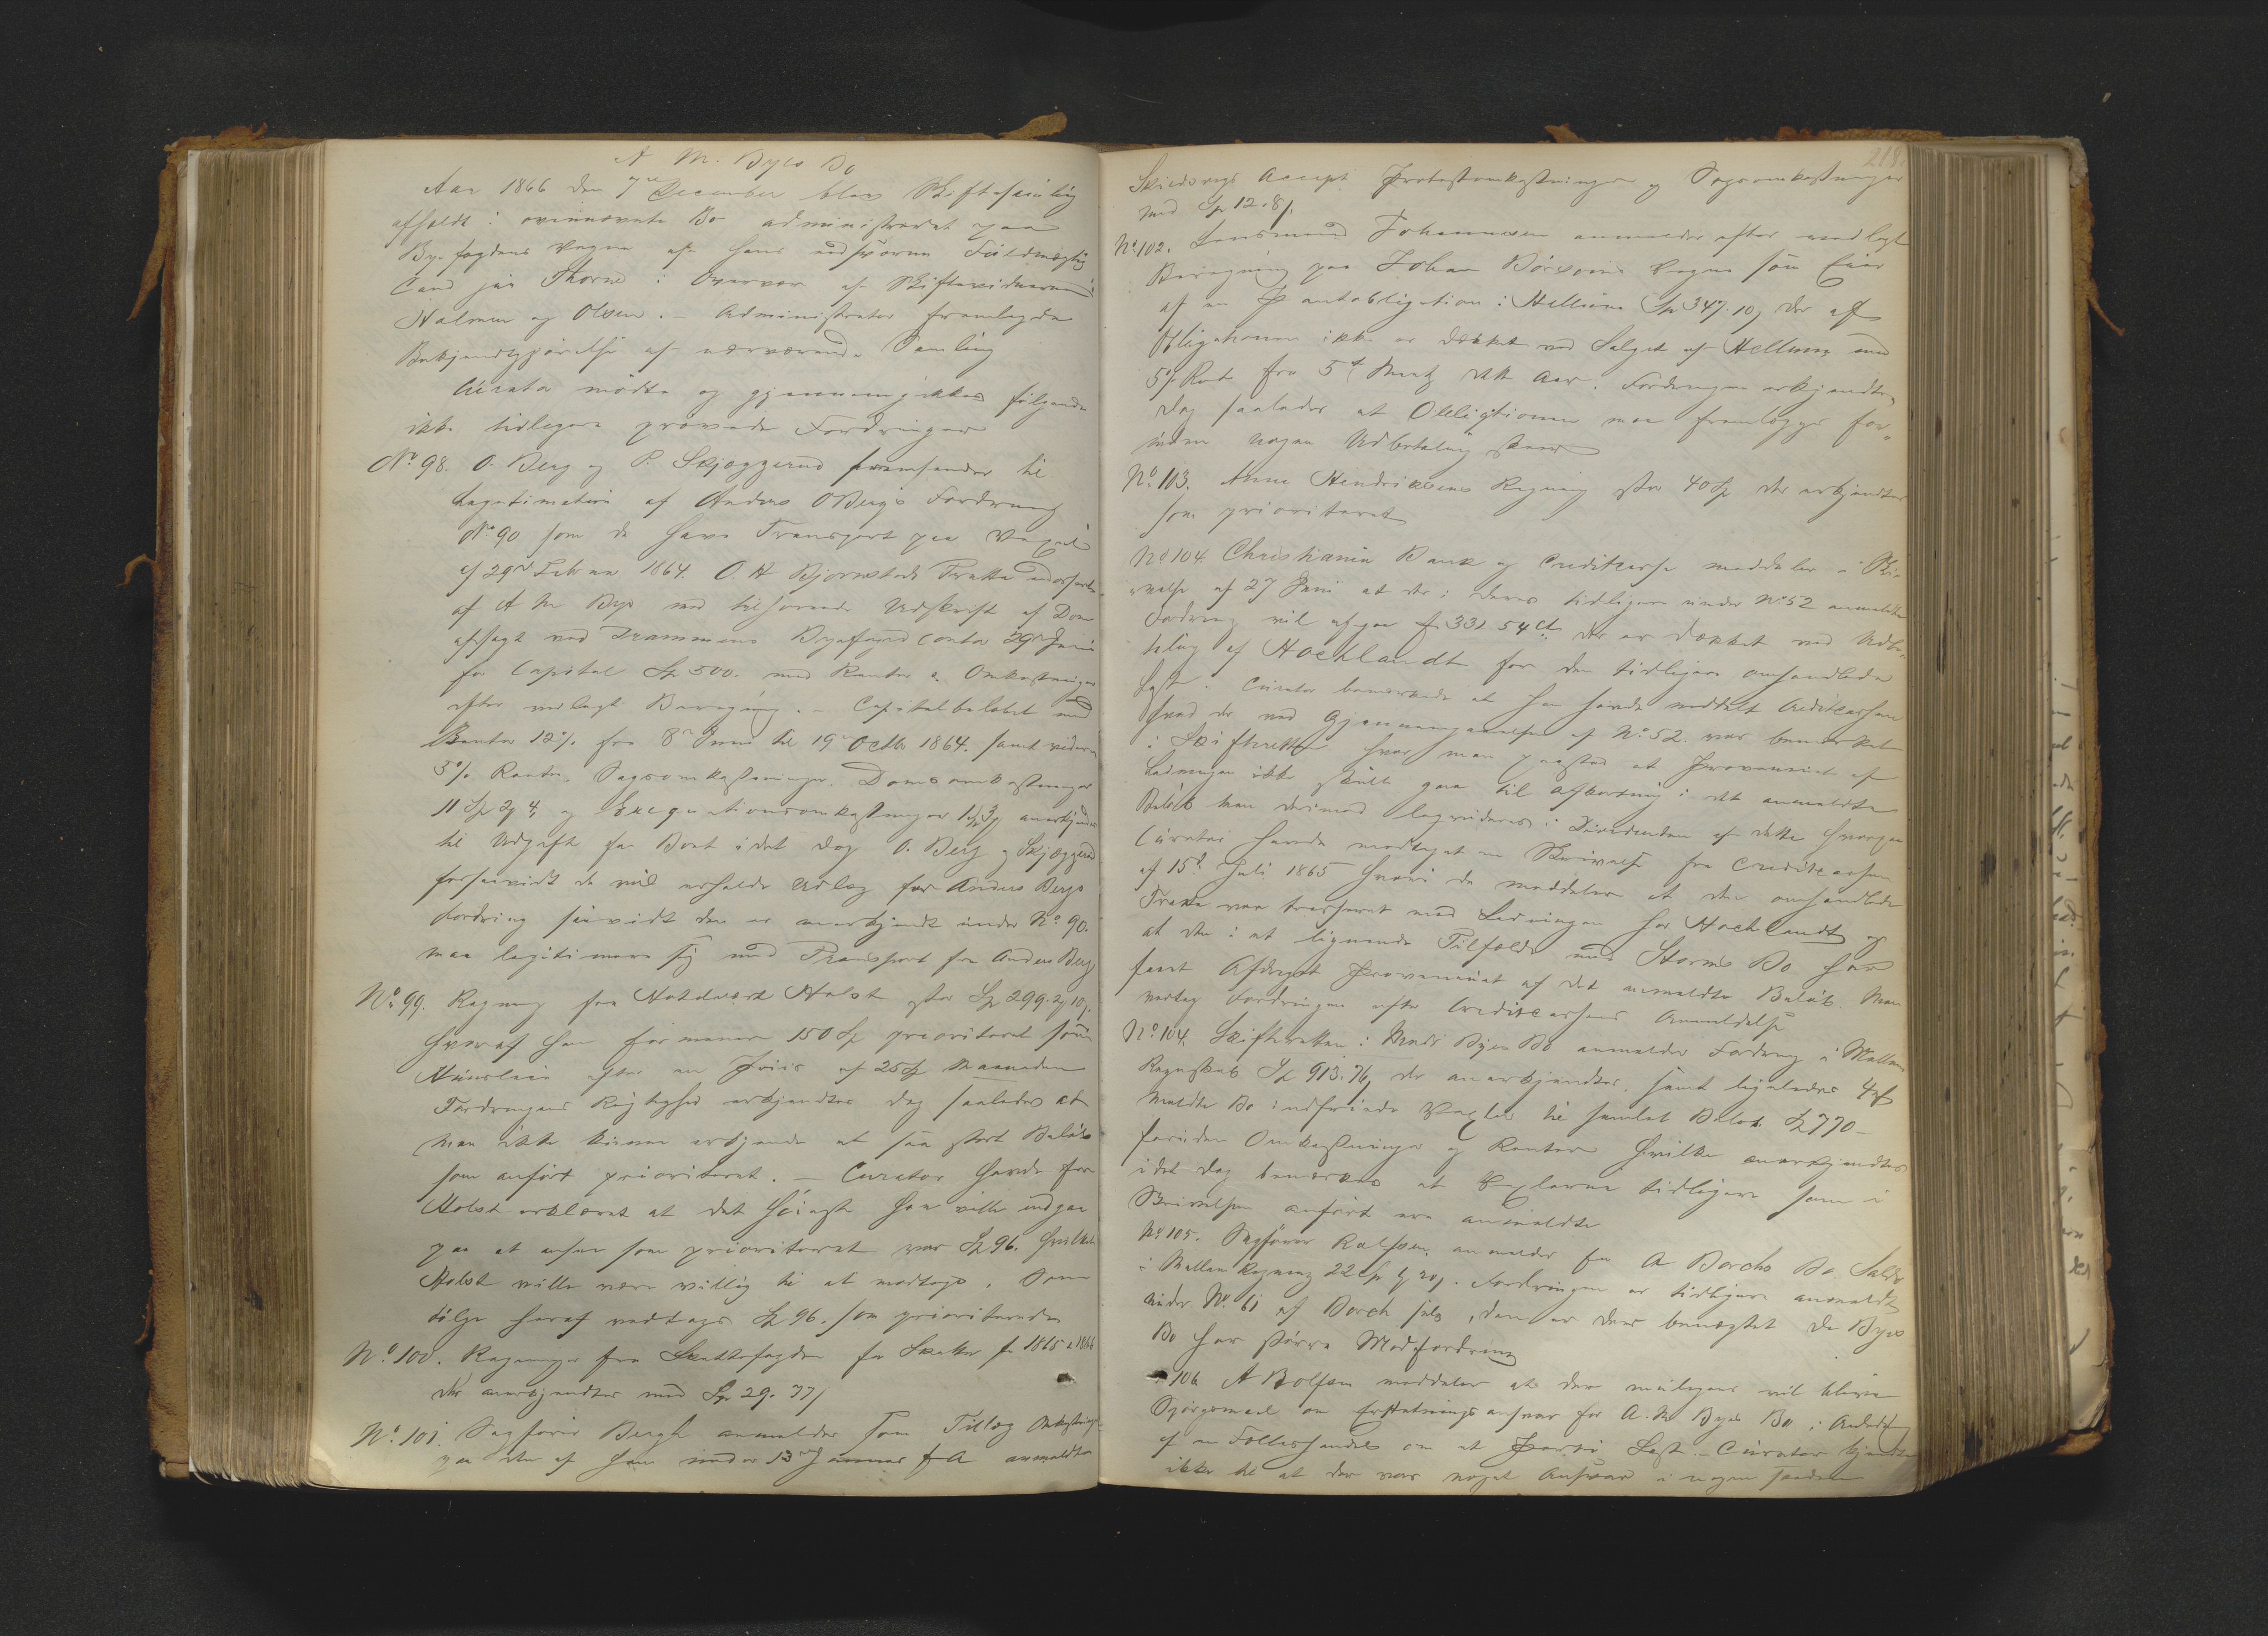 A M. Byes Bo
Aar 1866 den 7de December blev Skiftesamling
afholdt i ovennævnte Bo administreret paa
Byefogdens Vegne af hans edsvorne Fuldmægtig
Cand jur Thorne i Overvær af Skiftevidnerne
Halmen og Olsen. – Administrator fremlagde
Bekjendtgjørelse af nærværende Samling
Curator mødte og gjennemgikkes følgende
ikke tidligere prøvede Fordringer
No 98. O. Berg og P. Skjæggerud fremsender til
Legitimation af Anders O Bergs Fordring
No 90 som de have Transport paa Vexel
af 29de Februar 1864. O. A Bjornstads Tratta endosseret
af A M Bye med tilhørende Udskrift af Dom
afsagt ved Drammens Byefoged Contor 29de Juni
for Capital Sp 500. med Renter og Omkostninger
efter vedlagt Beregning. – Capitalbeløbet med
Renter 12% fra 8de Juni til 19de Octbr 1864. samt videre
5% Rente, Sagsomkostninger, Domsomkostninger
11 Sp 2 4 og Exequtionsomkostninger 1 Sp 3 anerkjendes
til Udgift for Boet idet dog O. Berg og Skjæggerud
forsaavidt de vil erholde Udlæg for Anders Bergs
Fordring saavidt den er anerkjendt under No 90.
maa legitimere sig med Transport fra Anders Berg
No 99. Regning fra Holst stor Sp 299. 2 10
hvoraf han formener 150 Sp prioriteret som
Huusleie efter en Priis af 25 Sp Maaneden
Fordringens Rigtighed erkjendtes dog saaledes at
man ikke kunne erkjende et saa stort Beløb
som anført prioriteret. – Curator havde for
Holst erklæret at det høieste han ville indgaa
paa at ansee som prioriteret var Sp 96. hvilket
Holst ville være villig til at modtage. Som
følge heraf vedtages Sp 96. som prioriterede
No 100. Regninger fra Skattefogden for Skatter for 1865 & 1866
der anerkjendtes med Sp 29. 37
No 101. Sagfører Bergh anmelder som Tillæg Omkostninger
paa den af ham under 13de Januar f A anmeldte
218.
Skiedsvigs Accept Protestomkostninger og Sagsomkostninger
med Sp 12. 8
No 102. Lensmand Johannesen anmelder efter vedlagt
Beregning paa Johan Vegne som Eier
af en Pantobligation i Hellum Sp 347. 10, der af
Obligationen ikke er dækket ved Salget af Hellum med
5% Rente fra 5te Marts dette Aar. Fordringen erkjendtes
dog saaledes at Obligtionen maa fremlægges for=
inden nogen Udbetaling skeer
No 103. Anne Hendriksens Regning stor 40 Sp der erkjendtes
som prioriteret
No 104. Christiania Bank og Creditcasse meddeler i Skri=
velse af 27 Juni at der i deres tidligere under No 52 anmeldte
Fordring vil afgaa £ 331. 54 ct der er dækket ved Udbe=
taling af Hochlandt for den tidligere omhandlede
Last. Curator bemærkede at han havde meddelt Creditcassen
hvad der ved Gjennemgaaelsen af No 52. var bemærket
i Skifteretten hvor man paastod at Provenuet af
Ladningen ikke skulle gaa til Afkortning i det anmeldte
Beløb men derimod i Dividenden af dette hvorpaa
Curator havde modtaget en Skrivelse fra Creditcassen
af 15de Juli 1865 hvori de meddeler at den omhandlede
Tratta var trasseret mod Ladningen hos Hochlandt og
at der i et lignende Tilfælde med Storms Bo har
faaet Afdraget Provenuet af det anmeldte Beløb. Man
vedtog Fordringen efter Creditcassens Anmeldelse
No 104. Skifteretten i Mads Byes Bo anmelder Fordring i Mellem
Regnskab Sp 913. 76, der anerkjendtes. samt ligeledes 4 af
meldte Bo indfriede Vexler til samlet Beløb Sp 770 –
foruden Omkostninger og Renter hvilke anerkjendtes
idet dog bemærkes at Vexlerne tidligere som i
Skrivelsen anført ere anmeldte
No 105. Sagfører Rolfsen anmelder fra A Borchs Bo Saldo
i Mellem Regning 22 Sp 4 20. Fordringen er tidligere anmeldt
under No 61 af Borch selv, den er der benegtet da Byes
Bo har større Modfordring
106 A Rolfsen meddeler at der muligens vil blive
Spørgsmaal om Erstatningsansvar for A. M Byes Bo i Anledning
af en Fælleshandel om et Parti Last. – Curator kjendte
ikke til at der var noget Ansvar i nogen saadan